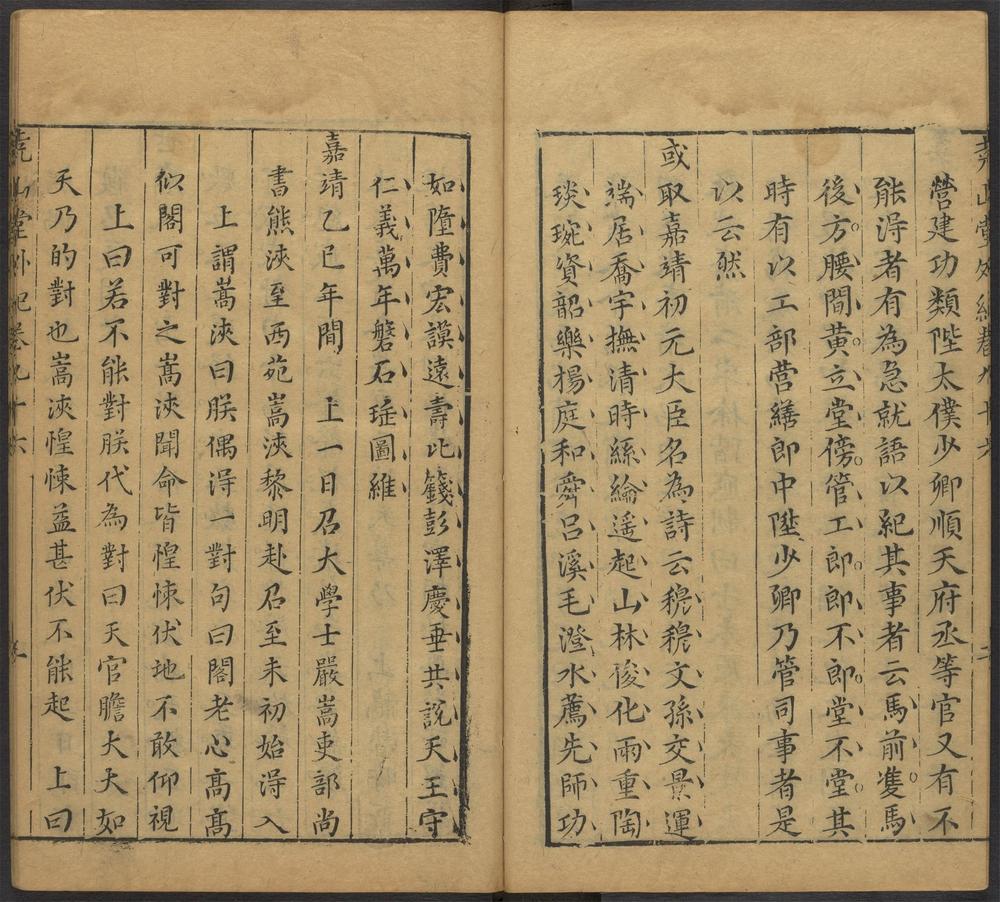 堯山堂外紀卷九十六 二
營建功類陞太僕少卿順天府丞等官又有不
能得者有為急就語以紀其事者云馬前隻馬
後方腰間黃立堂傍管工郎郎不郎堂不堂其
時有以工部營繕郎中陞少卿乃管司事者是
以云然
或取嘉靖初元大臣名為詩云穆穆文孫交景運
端居喬宇撫清時絲綸遥起山林俊化雨重陶
琰琬資韶樂楊庭和舜呂溪毛澄水薦先師功
如隆費宏謨遠壽比籛彭澤慶垂共說天王守
仁義萬年磐石珤圖維
嘉靖乙巳年間 上一日召大學士嚴嵩吏部尚
書熊浹至西苑嵩浹黎明赴召至未初始得入
上謂嵩浹曰朕偶得一對句曰閣老心高高
似閣可對之嵩浹聞命皆惶悚伏地不敢仰視
上曰若不能對朕代為對曰天官膽大大如
天乃的對也嵩浹惶悚益甚伏不能起 上曰
堯山堂外紀卷九十六